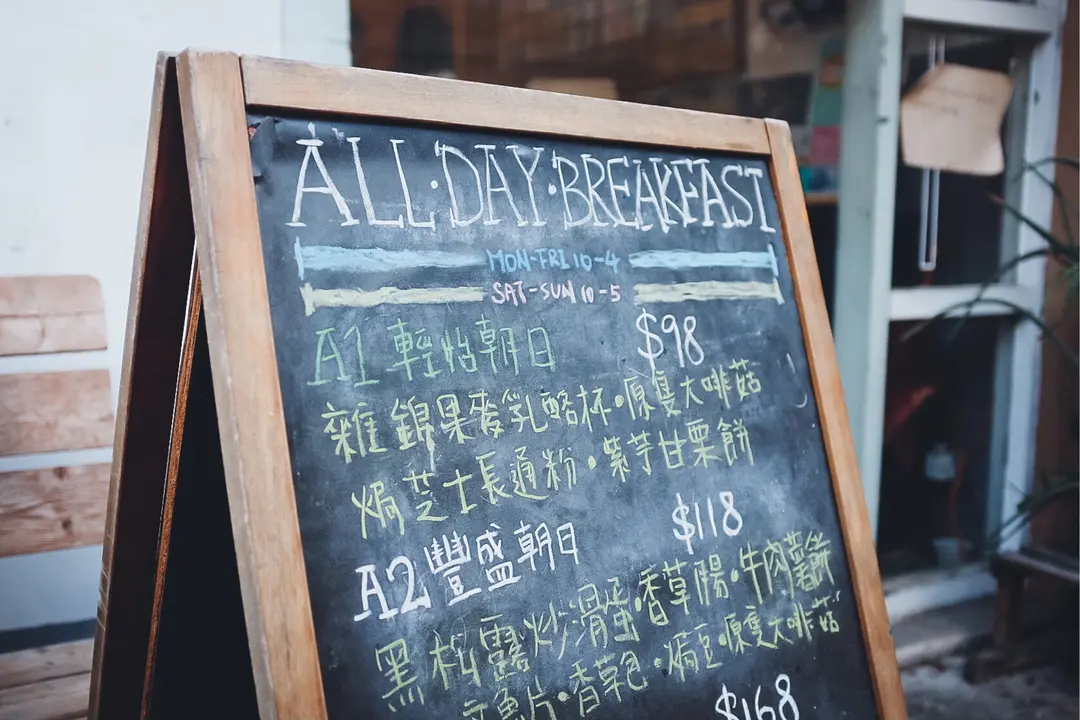 ALL·DAY·BREAKFAST
MON-FRI 10-4
SAT-SUN 10-5
A1 輕怡朝日 $98
雜錦果麥乳酪杯·原隻大啡菇
焗芝士長通粉·紫芋甘栗餅
A2 豐盛朝日 $118
黑松露炒滑蛋·香草腸·牛肉薯餅
魚片·香草包·焗豆·原隻大啡菇
$168